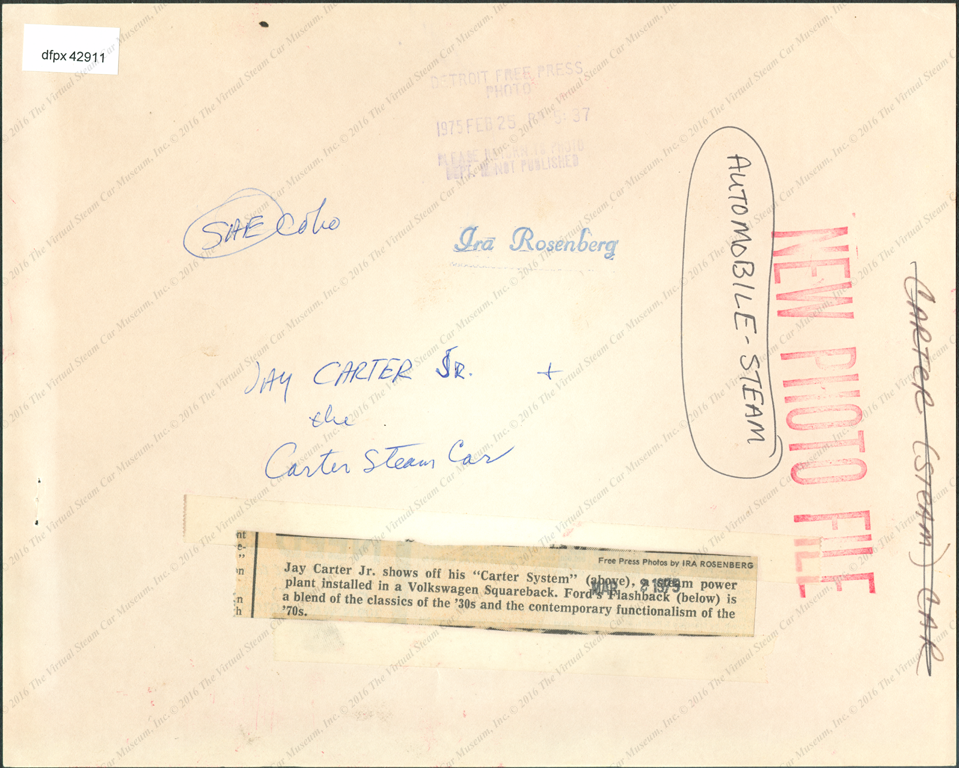 dfpx 42911
DETROIT FREE PRESS
PHOTO
1975 FEB 25
NOT PUBLISHED
SAE Cobo
Ira Rosenberg
AUTOMOBILE-STEAM
NEW PHOTO FILE
CARTER (STEAM) CAR
JAY CARTER JR. +
the
Carter Steam Car
Free Press Photos by IRA ROSENBERG
Jay Carter Jr. shows off his "Carter System" (above), a steam power
plant installed in a Volkswagen Squareback. Ford's Flashback (below) is
a blend of the classics of the '30s and the contemporary functionalism of the
'70s.
MAR 2 1975
© 2016 The Virtual Steam Car Museum, Inc.